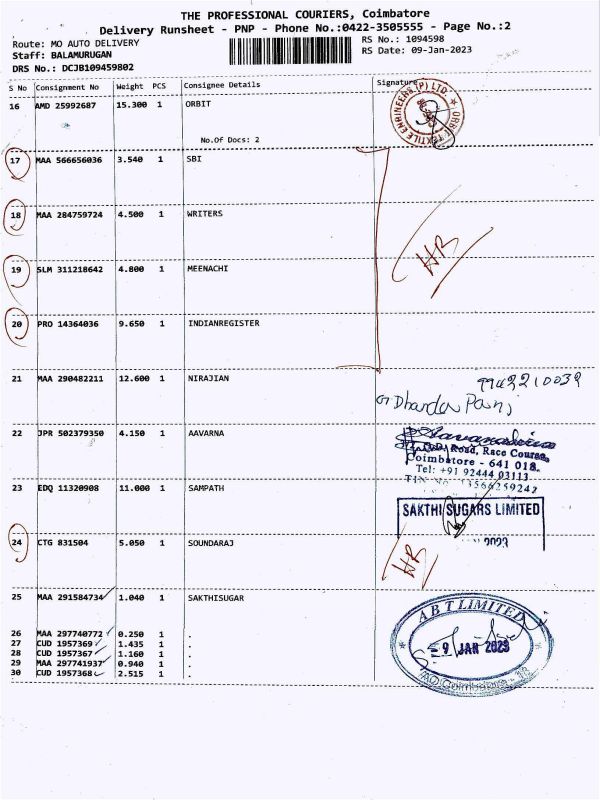 THE PROFESSIONAL COURIERS, Coimbatore
Delivery Runsheet - PNP - Phone No.:0422-3505555 - Page No.:2
Route: MO AUTO DELIVERY
RS No.: 1094598
Staff: BALAMURUGAN
RS Date: 09-Jan-2023
DRS No.: DCJB109459802
S No Consignment No Weight PCS Consignee Details Signature
16 AMD 25992687 15.300 1 ORBIT
ORBIT TEXTILE ENGINEERS (P) LTD.
No.Of Docs: 2
17 MAA 566656036 3.540 1 SBI
18 MAA 284759724 4.500 1 WRITERS
HB
19 SLM 311218642 4.800 1 MEENACHI
20 PRO 14364036 9.650 1 INDIANREGISTER
21 MAA 290482211 12.600 1 NIRAJIAN
9942210039
22 JPR 502379350 4.150 1 AAVARNA
Road, Race Course,
Coimbatore - 641 018.
Tel: +91 92444 03113
23 EDQ 11320908 11.000 1 SAMPATH
SAKTHI SUGARS LIMITED
2023
24 CTG 831504 5.050 1 SOUNDARAJ
HB
25 MAA 291584734 1.040 1 SAKTHISUGAR
ABT LIMITED
26 MAA 297740772 0.250 1 .
27 CUD 1957369 1.435 1 .
28 CUD 1957367 1.160 1 .
29 MAA 297741937 0.940 1 .
30 CUD 1957368 2.515 1 .
9 JAN 2023